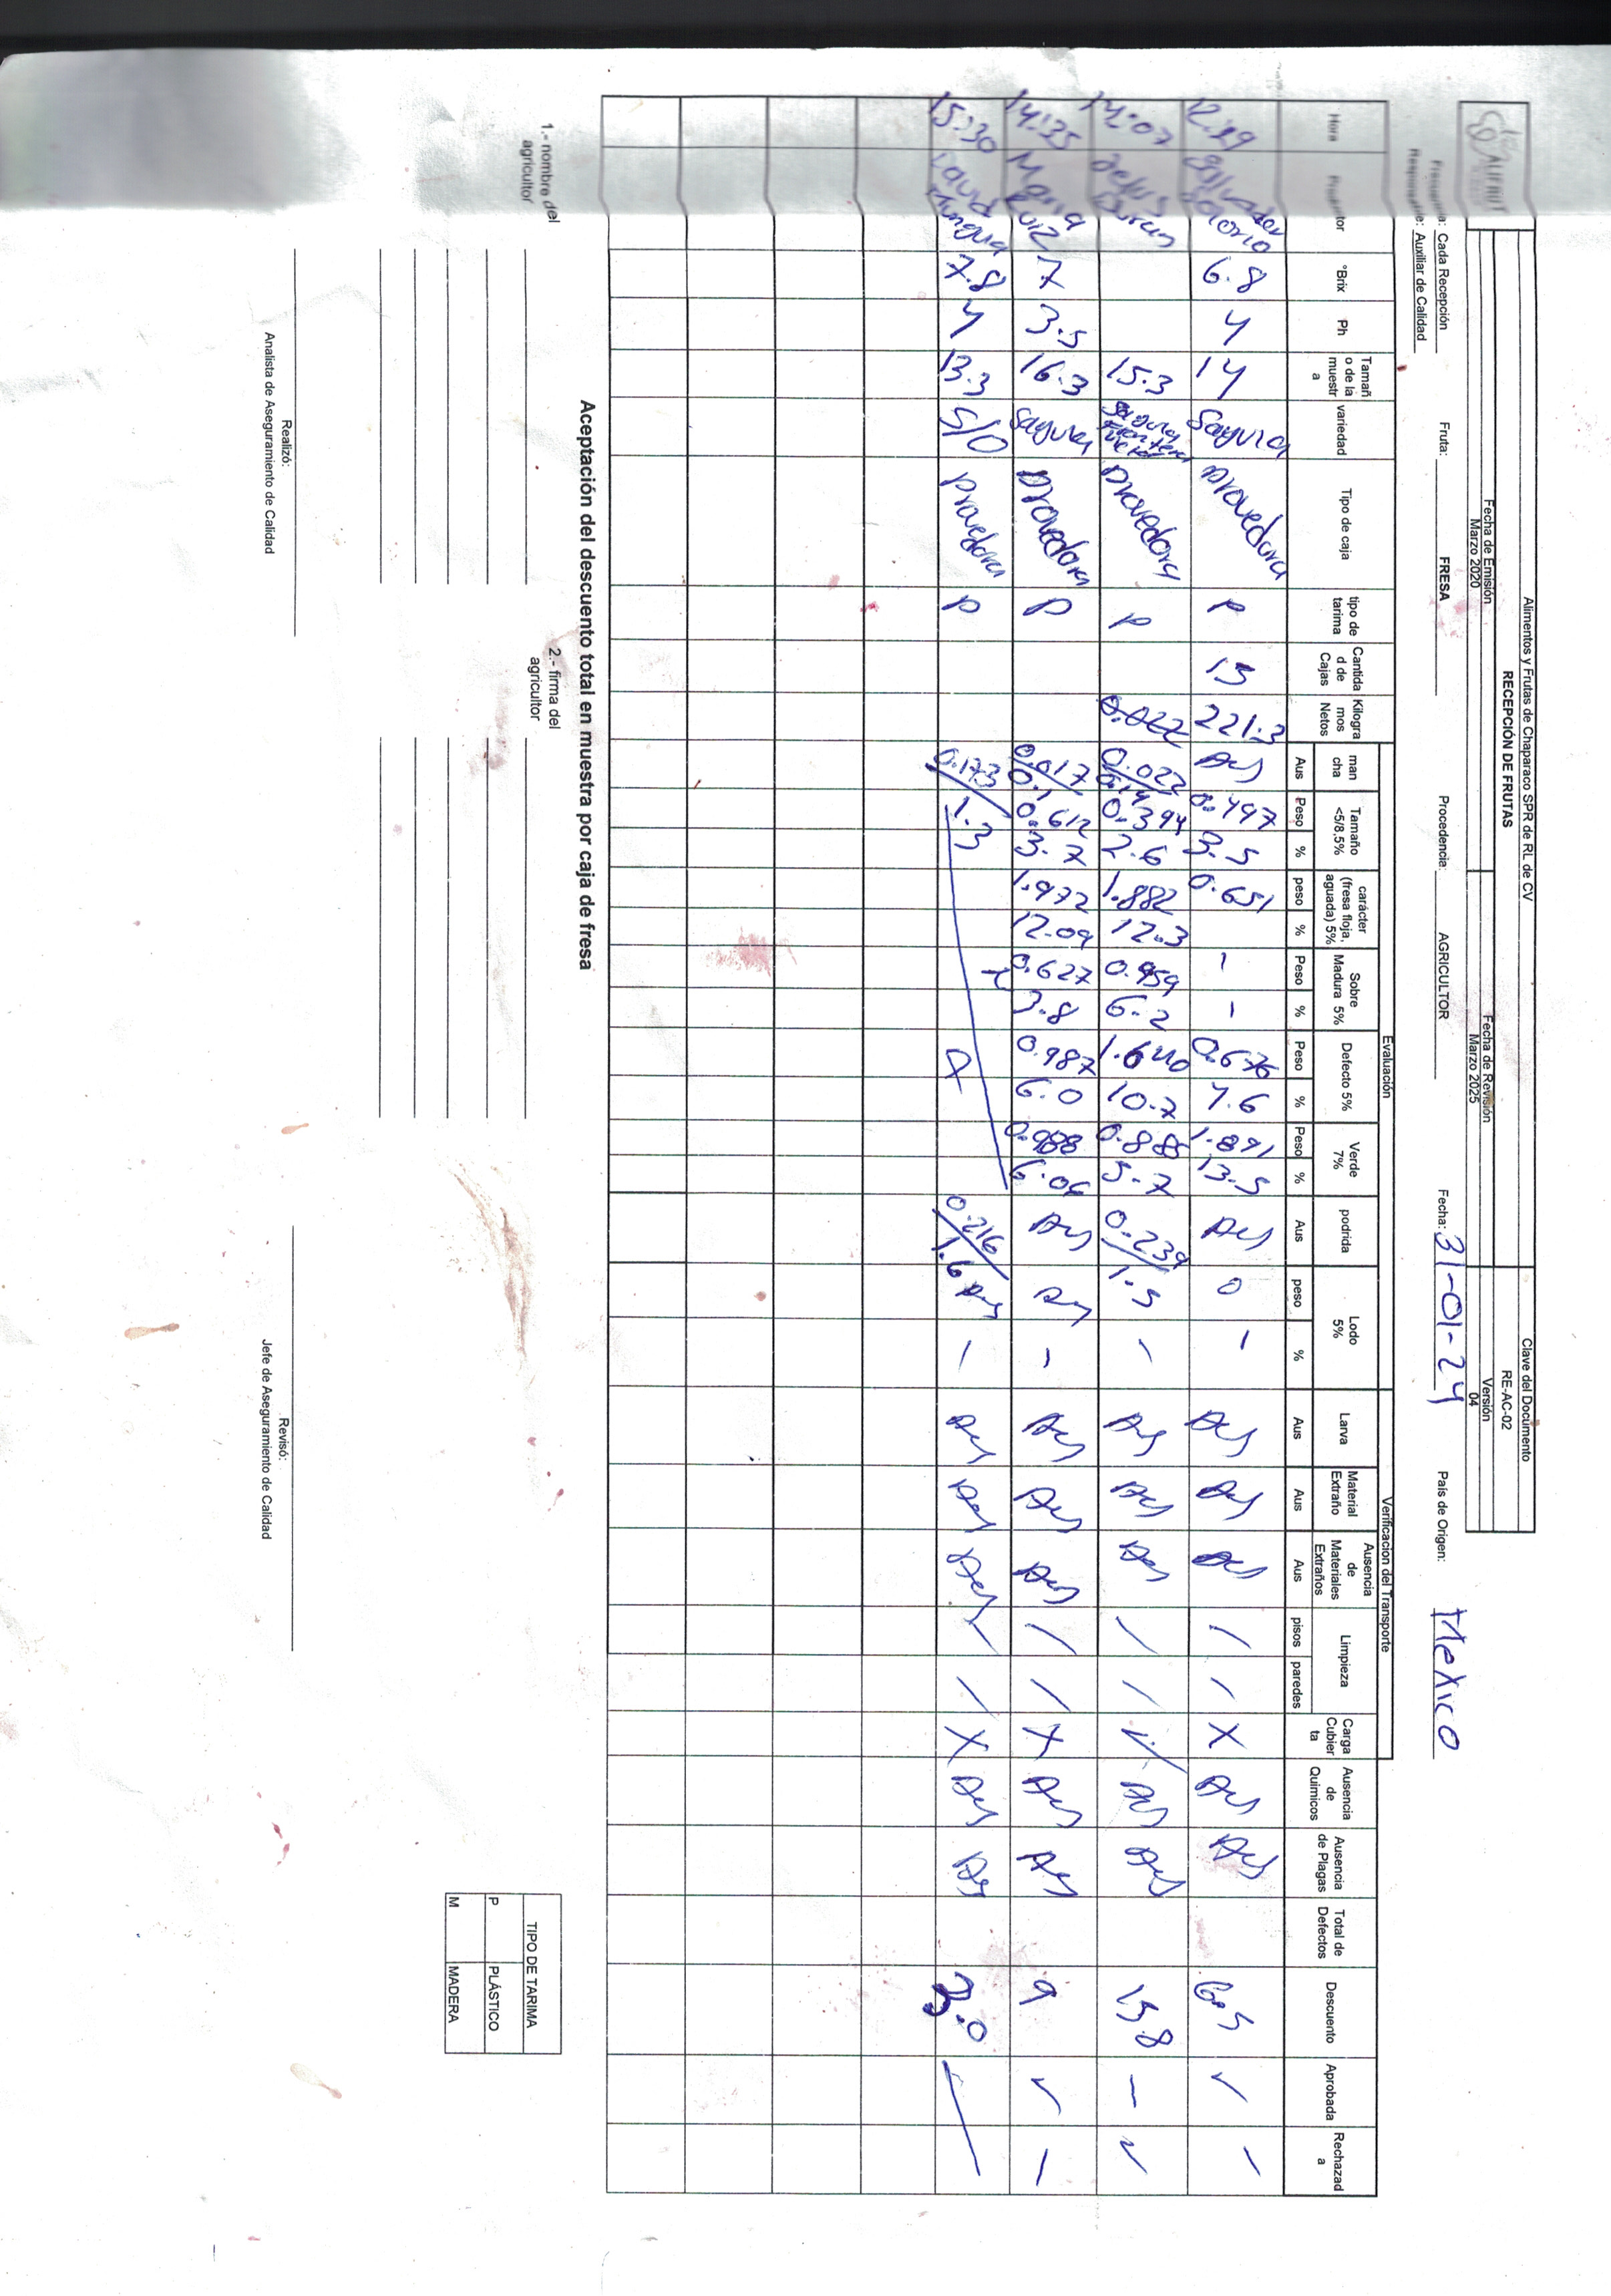 ALIFRUT
Alimentos y Frutas de Chaparaco SPR de RL de CV
Clave del Documento
RECEPCIÓN DE FRUTAS
RE-AC-02
Fecha de Emisión
Fecha de Revisión
Versión
Marzo 2020
Marzo 2025
04
Frecuencia: Cada Recepción Fruta: FRESA Procedencia: AGRICULTOR Fecha: 31-01-24 País de Origen: Mexico
Responsable: Auxiliar de Calidad
Evaluación
Verificacion del Transporte
Hora
Productor
°Brix
Ph
Tamañ
o de la
muestr
a
variedad
Tipo de caja
tipo de
tarima
Cantida
d de
Cajas
Kilogra
mos
Netos
man
cha
Tamaño
<5/8,5%
carácter
(fresa floja,
aguada) 5%
Sobre
Madura 5%
Defecto 5%
Verde
7%
podrida
Lodo
5%
Larva
Material
Extraño
Ausencia
de
Materiales
Extraños
Limpieza
Carga
Cubier
ta
Ausencia
de
Quimicos
Ausencia
de Plagas
Total de
Defectos
Descuento
Aprobada
Rechazad
a
Aus Peso % peso % Peso % Peso % Peso % Aus peso % Aus Aus Aus pisos paredes
12:29 Salvador Solorio 6.8 4 14 Sayuria Provedora P 15 221.3 Aus 0.497 3.5 0.651 - - 0.676 13.5 Aus 0 - Aus Aus Aus / / X Aus Aus 6.5 ✓ -
14:07 Duran 15.3 Provedora P 0.022 0.022 0.394 2.6 1.882 12.3 0.959 6.2 1.640 10.7 5.7 0.239 1.5 - Aus Aus Aus / / ✓ Aus Aus 15.8 - ✓
14:35 Maria Ruiz 7 3.5 16.3 Sayuri Provedora P 0.017 0.1 0.612 3.7 1.972 12.09 0.627 3.8 0.987 6.0 0.988 6.06 Aus Aus - Aus Aus Aus / / X Aus Aus 9 ✓ -
15:30 Laura 7.8 4 13.3 S/O Provedora P 0.173 1.3 0.216 1.6 Aus - Aus Aus Aus / / X Aus Aus 3.0
Aceptación del descuento total en muestra por caja de fresa
1.- nombre del
agricultor
2.- firma del
agricultor
TIPO DE TARIMA
P PLÁSTICO
M MADERA
Realizó:
Analista de Aseguramiento de Calidad
Revisó:
Jefe de Aseguramiento de Calidad